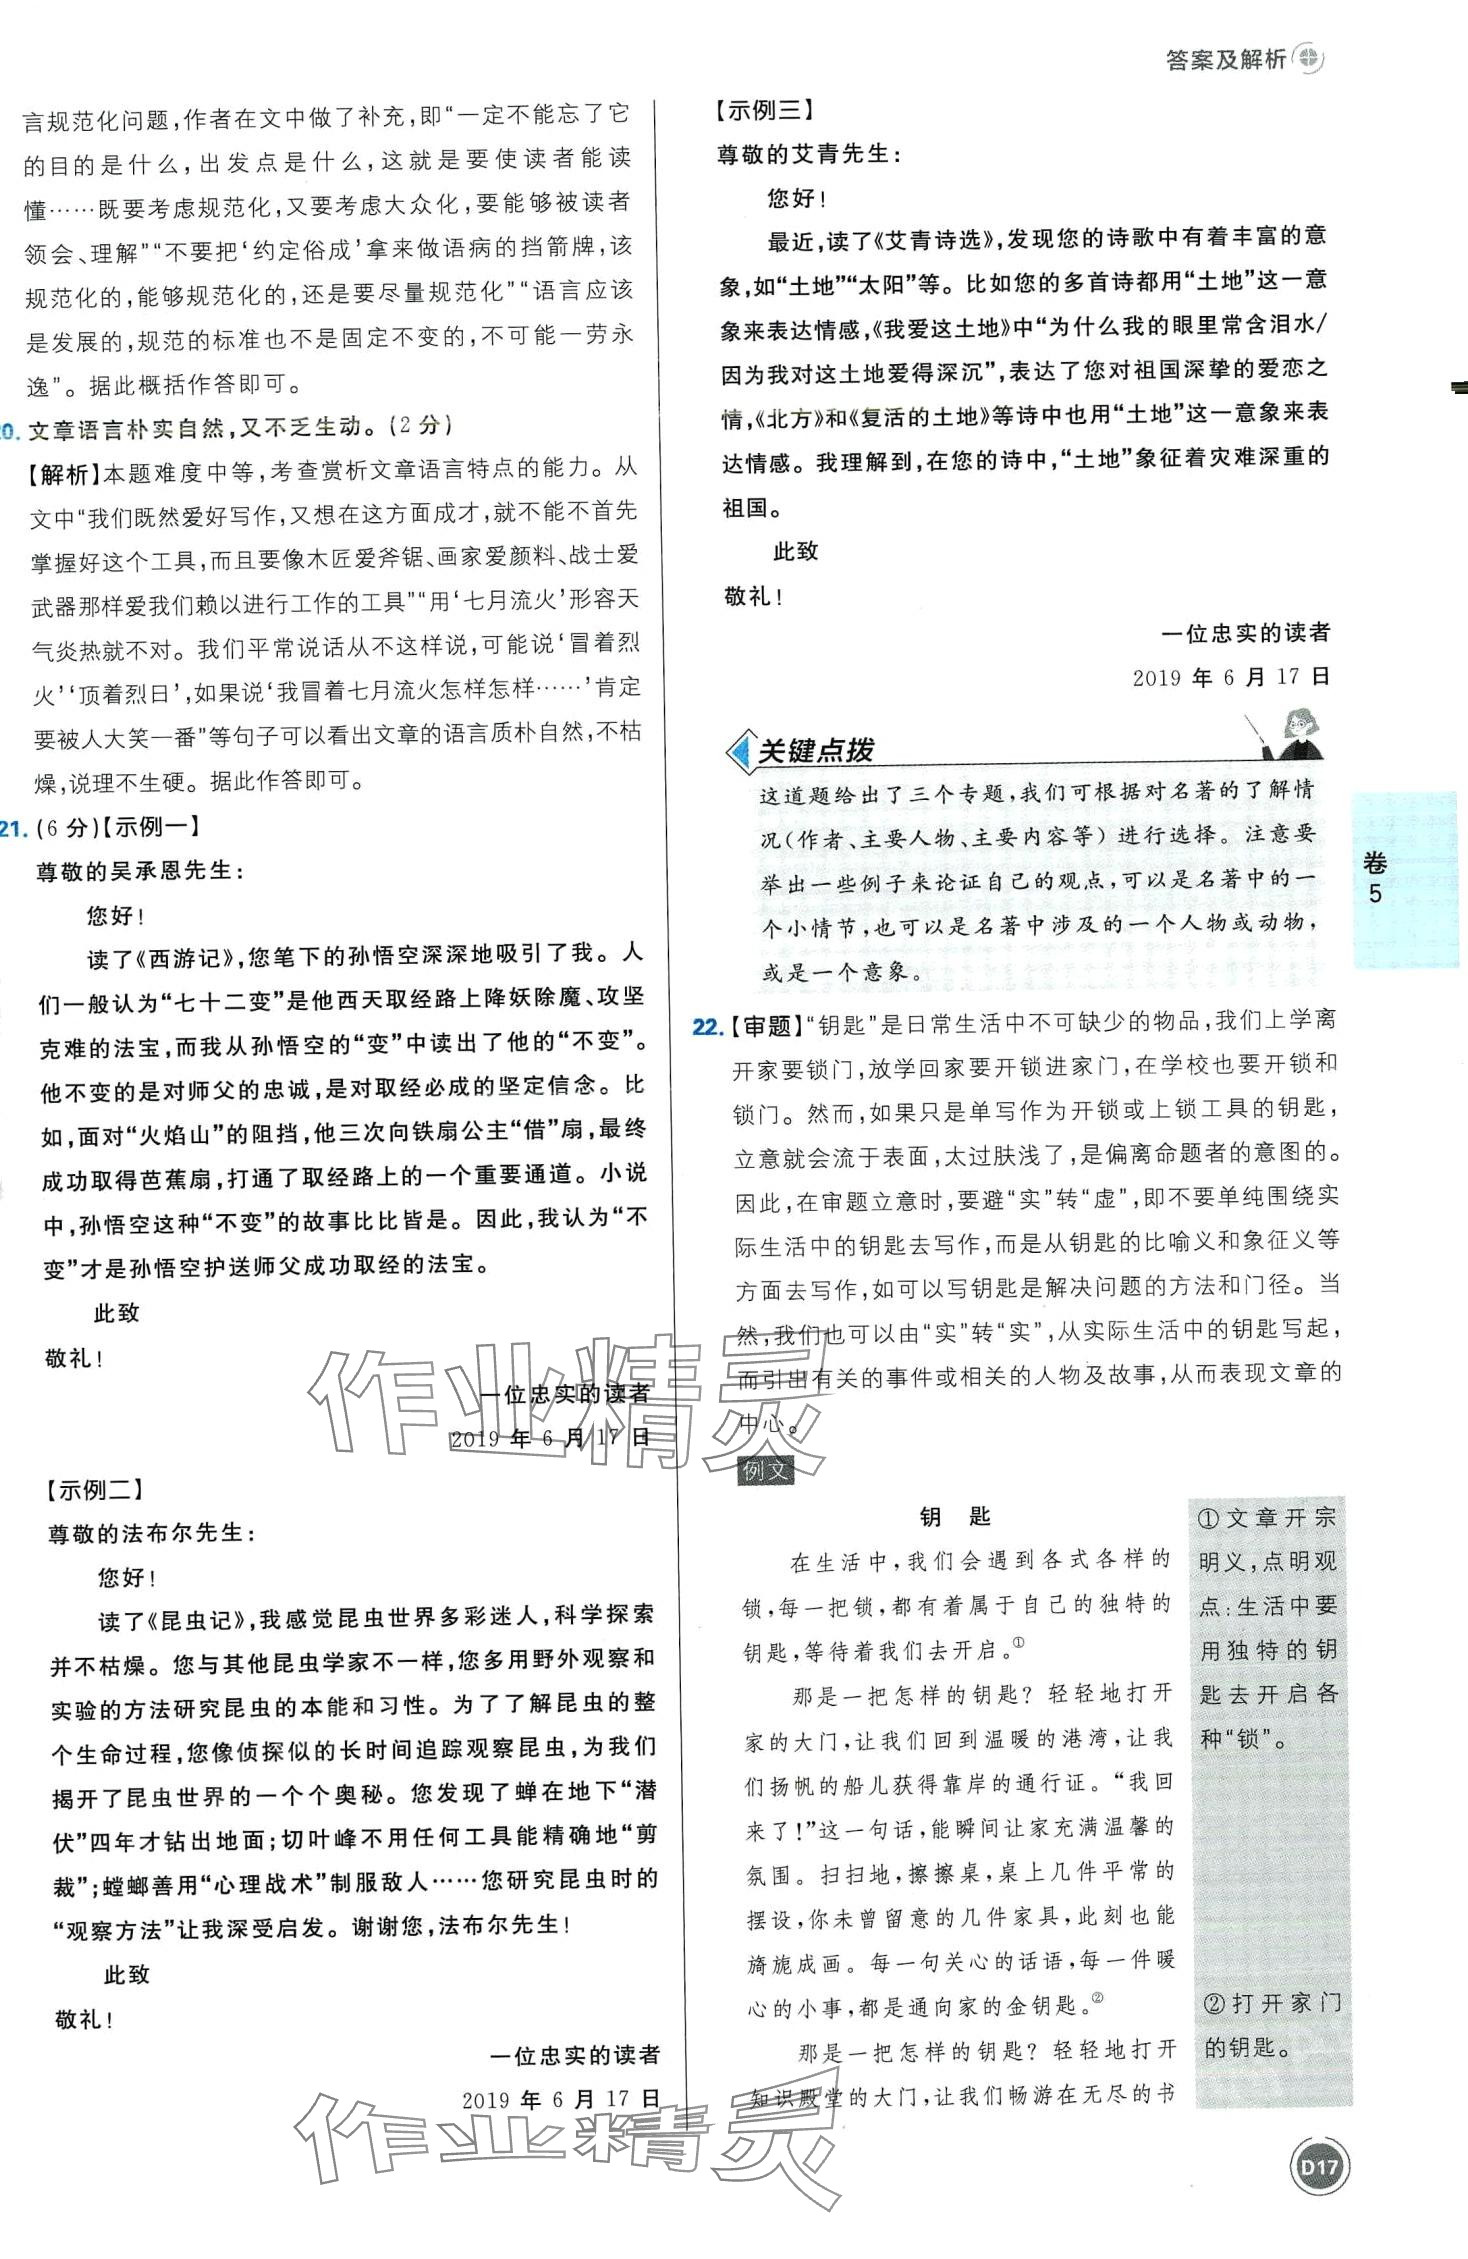 答案及解析
言规范化问题,作者在文中做了补充,即“一定不能忘了它
的目的是什么,出发点是什么,这就是要使读者能读
懂……既要考虑规范化,又要考虑大众化,要能够被读者
领会、理解”“不要把‘约定俗成’拿来做语病的挡箭牌,该
规范化的,能够规范化的,还是要尽量规范化”“语言应该
是发展的,规范的标准也不是固定不变的,不可能一劳永
逸”。据此概括作答即可。
20. 文章语言朴实自然,又不乏生动。(2分)
【解析】本题难度中等,考查赏析文章语言特点的能力。从
文中“我们既然爱好写作,又想在这方面成才,就不能不首先
掌握好这个工具,而且要像木匠爱斧锯、画家爱颜料、战士爱
武器那样爱我们赖以进行工作的工具”“用‘七月流火’形容天
气炎热就不对。我们平常说话从不这样说,可能说‘冒着烈
火’‘顶着烈日’,如果说‘我冒着七月流火怎样怎样……’肯定
要被人大笑一番”等句子可以看出文章的语言质朴自然,不枯
燥,说理不生硬。据此作答即可。
21. (6分)【示例一】
尊敬的吴承恩先生:
您好!
读了《西游记》,您笔下的孙悟空深深地吸引了我。人
们一般认为“七十二变”是他西天取经路上降妖除魔、攻坚
克难的法宝,而我从孙悟空的“变”中读出了他的“不变”。
他不变的是对师父的忠诚,是对取经必成的坚定信念。比
如,面对“火焰山”的阻挡,他三次向铁扇公主“借”扇,最终
成功取得芭蕉扇,打通了取经路上的一个重要通道。小说
中,孙悟空这种“不变”的故事比比皆是。因此,我认为“不
变”才是孙悟空护送师父成功取经的法宝。
此致
敬礼!
一位忠实的读者
2019年6月17日
【示例二】
尊敬的法布尔先生:
您好!
读了《昆虫记》,我感觉昆虫世界多彩迷人,科学探索
并不枯燥。您与其他昆虫学家不一样,您多用野外观察和
实验的方法研究昆虫的本能和习性。为了了解昆虫的整
个生命过程,您像侦探似的长时间追踪观察昆虫,为我们
揭开了昆虫世界的一个个奥秘。您发现了蝉在地下“潜
伏”四年才钻出地面;切叶峰不用任何工具能精确地“剪
裁”;螳螂善用“心理战术”制服敌人……您研究昆虫时的
“观察方法”让我深受启发。谢谢您,法布尔先生!
此致
敬礼!
一位忠实的读者
2019年6月17日
【示例三】
尊敬的艾青先生:
您好!
最近,读了《艾青诗选》,发现您的诗歌中有着丰富的意
象,如“土地”“太阳”等。比如您的多首诗都用“土地”这一意
象来表达情感,《我爱这土地》中“为什么我的眼里常含泪水/
因为我对这土地爱得深沉”,表达了您对祖国深挚的爱恋之
情,《北方》和《复活的土地》等诗中也用“土地”这一意象来表
达情感。我理解到,在您的诗中,“土地”象征着灾难深重的
祖国。
此致
敬礼!
一位忠实的读者
2019年6月17日
关键点拨
这道题给出了三个专题,我们可根据对名著的了解情
况(作者、主要人物、主要内容等)进行选择。注意要
举出一些例子来论证自己的观点,可以是名著中的一
个小情节,也可以是名著中涉及的一个人物或动物,
或是一个意象。
卷
5
22.【审题】“钥匙”是日常生活中不可缺少的物品,我们上学离
开家要锁门,放学回家要开锁进家门,在学校也要开锁和
锁门。然而,如果只是单写作为开锁或上锁工具的钥匙,
立意就会流于表面,太过肤浅了,是偏离命题者的意图的。
因此,在审题立意时,要避“实”转“虚”,即不要单纯围绕实
际生活中的钥匙去写作,而是从钥匙的比喻义和象征义等
方面去写作,如可以写钥匙是解决问题的方法和门径。当
然,我们也可以由“实”转“实”,从实际生活中的钥匙写起,
而引出有关的事件或相关的人物及故事,从而表现文章的
中心。
例文
钥 匙
在生活中,我们会遇到各式各样的
锁,每一把锁,都有着属于自己的独特的
钥匙,等待着我们去开启。①
那是一把怎样的钥匙?轻轻地打开
家的大门,让我们回到温暖的港湾,让我
们扬帆的船儿获得靠岸的通行证。“我回
来了!”这一句话,能瞬间让家充满温馨的
氛围。扫扫地,擦擦桌,桌上几件平常的
摆设,你未曾留意的几件家具,此刻也能
旖旎成画。每一句关心的话语,每一件暖
心的小事,都是通向家的金钥匙。②
那是一把怎样的钥匙?轻轻地打开
知识殿堂的大门,让我们畅游在无尽的书
①文章开宗
明义,点明观
点:生活中要
用独特的钥
匙去开启各
种“锁”。
②打开家门
的钥匙。
D17
作业精灵
作业精灵